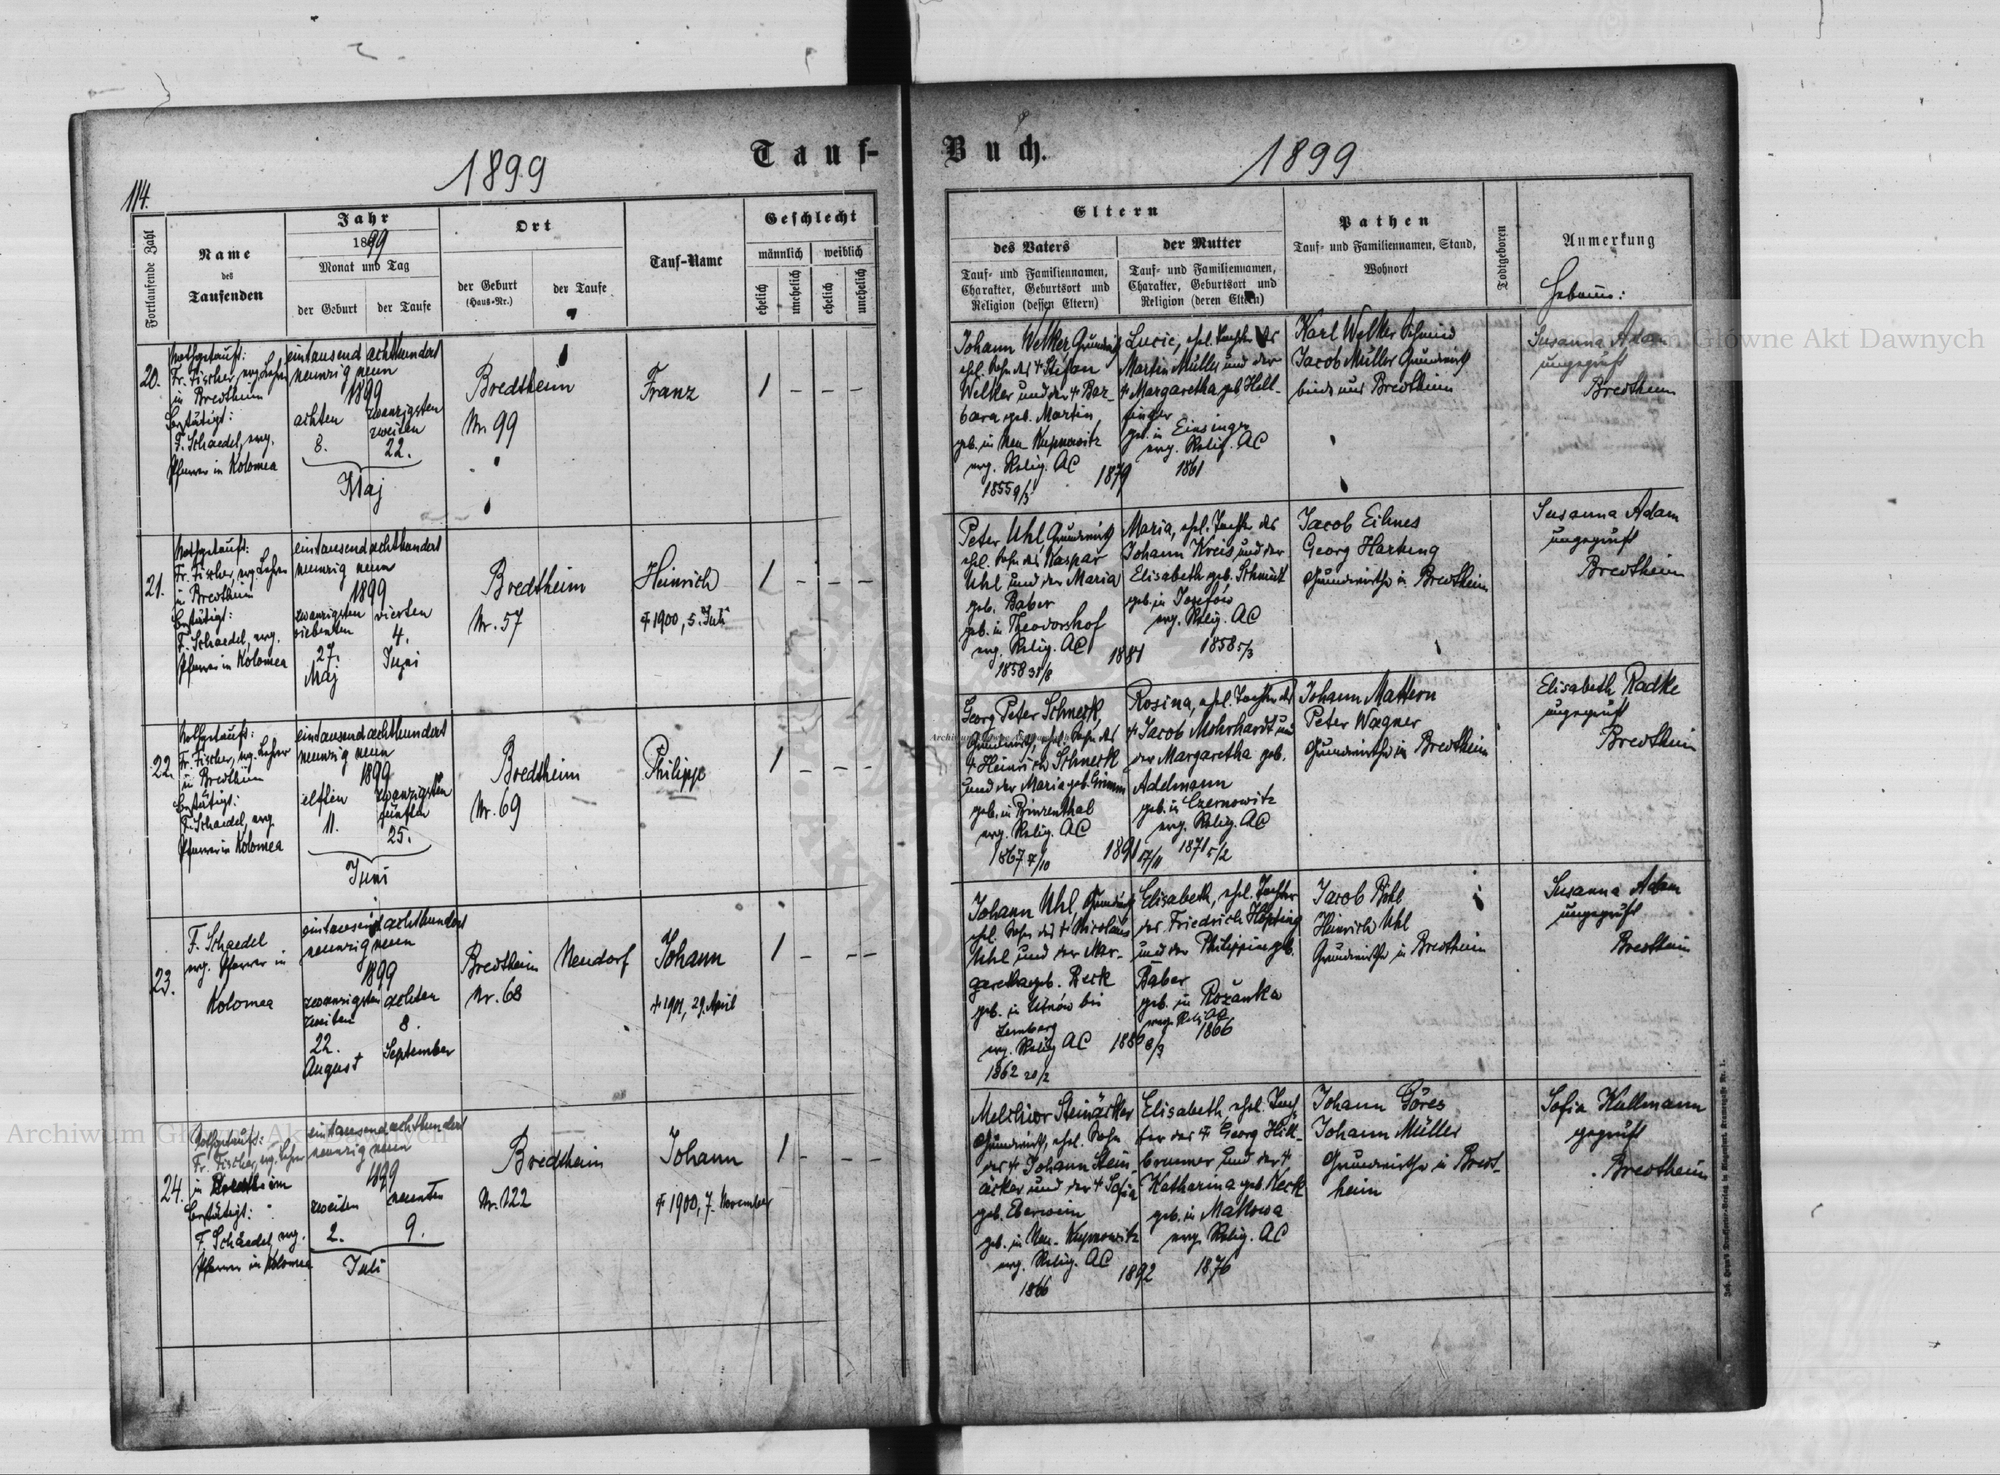 114.
1899
Tauf-
Fortlaufende Zahl
Name
des
Taufenden
Jahr
1899
Monat und Tag
der Geburt
der Taufe
Ort
der Geburt
(Haus-Nr.)
der Taufe
Tauf-Name
Geschlecht
männlich
weiblich
ehelich
unehelich
ehelich
unehelich
20.
Nothgetauft:
Fr. Fischer, evg. Lehrer
in Bredtheim
bestätigt:
F. Schaedel, evg.
Pfarrer in Kolomea
eintausend achthundert
neunzig neun
1899
achten
8.
zwanzigsten
zweiten
22.
Maj
Bredtheim
Nr. 99
Franz
1 – – –
21.
Nothgetauft:
Fr. Fischer, evg. Lehrer
in Bredtheim
bestätigt:
F. Schaedel, evg.
Pfarrer in Kolomea
eintausend achthundert
neunzig neun
1899
zwanzigsten
siebenten
27.
Maj
vierten
4.
Juni
Bredtheim
Nr. 57
Heinrich
† 1900, 5. Juli
1 – – –
22.
Nothgetauft:
Fr. Fischer, evg. Lehrer
in Bredtheim
bestätigt:
F. Schaedel, evg.
Pfarrer in Kolomea
eintausend achthundert
neunzig neun
1899
elften
11.
zwanzigsten
fünften
25.
Juni
Bredtheim
Nr. 69
Philipp
1 – – –
23.
F. Schaedel
evg. Pfarrer in
Kolomea
eintausend achthundert
neunzig neun
1899
zwanzigsten
zweiten
22.
August
achten
8.
September
Bredtheim
Nr. 68
Neudorf
Johann
† 1901, 29. April
1 – – –
24.
Nothgetauft:
Fr. Fischer, evg. Lehrer
in Bredtheim
bestätigt:
F. Schaedel, evg.
Pfarrer in Kolomea
eintausend achthundert
neunzig neun
1899
zweiten
2.
neunten
9.
Juli
Bredtheim
Nr. 122
Johann
† 1900, 7. November
1 – – –
Buch.
1899
Eltern
des Vaters
Tauf- und Familiennamen,
Charakter, Geburtsort und
Religion (dessen Eltern)
der Mutter
Tauf- und Familiennamen,
Charakter, Geburtsort und
Religion (deren Eltern)
Pathen
Tauf- und Familiennamen, Stand,
Wohnort
Todtgeboren
Anmerkung
Hebamme:
Johann Welker, Grundwirth
ehel. Sohn des † Stefan
Welker und der † Bar-
bara geb. Martin
geb. in Neu-Kupnowitz
evg. Relig. AC
1855 9/3
1879
Lucie, ehel. Tochter des
Martin Müller und der
† Margaretha geb. Hell-
finger
geb. in Einsingen
evg. Relig. AC
1861
Karl Welker Schmied
Jacob Müller Grundwirth
beide aus Bredtheim
Susanna Adam
ungeprüft
Bredtheim
Peter Uhl, Grundwirth
ehel. Sohn des Kaspar
Uhl und der Maria
geb. Baber
geb. in Theodorshof
evg. Relig. AC
1858 31/8
1881
Maria, ehel. Tochter des
Johann Kreis und der
Elisabeth geb. Schmidt
geb. in Josefow
evg. Relig. AC
1858 5/3
Jacob Eihnes
Georg Hartung
Grundwirthe in Bredtheim
Susanna Adam
ungeprüft
Bredtheim
Georg Peter Schmerk,
Grundwirth, ehel. Sohn des
† Heinrich Schmerk
und der Maria geb. Grimm
geb. in Brinzenthal
evg. Relig. AC
1867 4/10
1891 17/11
Rosina, ehel. Tochter des
† Jacob Mohrhardt und
der Margaretha geb.
Adelmann
geb. in Czernowitz
evg. Relig. AC
1871 5/2
Johann Mattern
Peter Wagner
Grundwirthe in Bredtheim
Elisabeth Radke
ungeprüft
Bredtheim
Johann Uhl, Grundwirth
ehel. Sohn des † Nicolaus
Uhl und der Mar-
garetha geb. Beck
geb. in Uhnów bei
Lemberg
evg. Relig. AC
1862 20/2
1889 8/3
Elisabeth, ehel. Tochter
des Friedrich Höpfing
und der Philippine geb.
Baber
geb. in Rożanka
evg. Relig. AC
1866
Jacob Pohl
Heinrich Uhl
Grundwirthe in Bredtheim
Susanna Adam
ungeprüft
Bredtheim
Melchior Steinäcker
Grundwirth, ehel. Sohn
des † Johann Stein-
äcker und der † Sofia
geb. Eberwein
geb. in Neu-Kupnowitz
evg. Relig. AC
1866
1892
Elisabeth ehel. Toch-
ter des † Georg Hill-
brunner und der †
Katharina geb. Keck
geb. in Malkowa
evg. Relig. AC
1876
Johann Göres
Johann Müller
Grundwirthe in Bredt-
heim
Sofia Kullmann
geprüft
Bredtheim
Archiwum Główne Akt Dawnych
Archiwum Główne Akt Dawnych